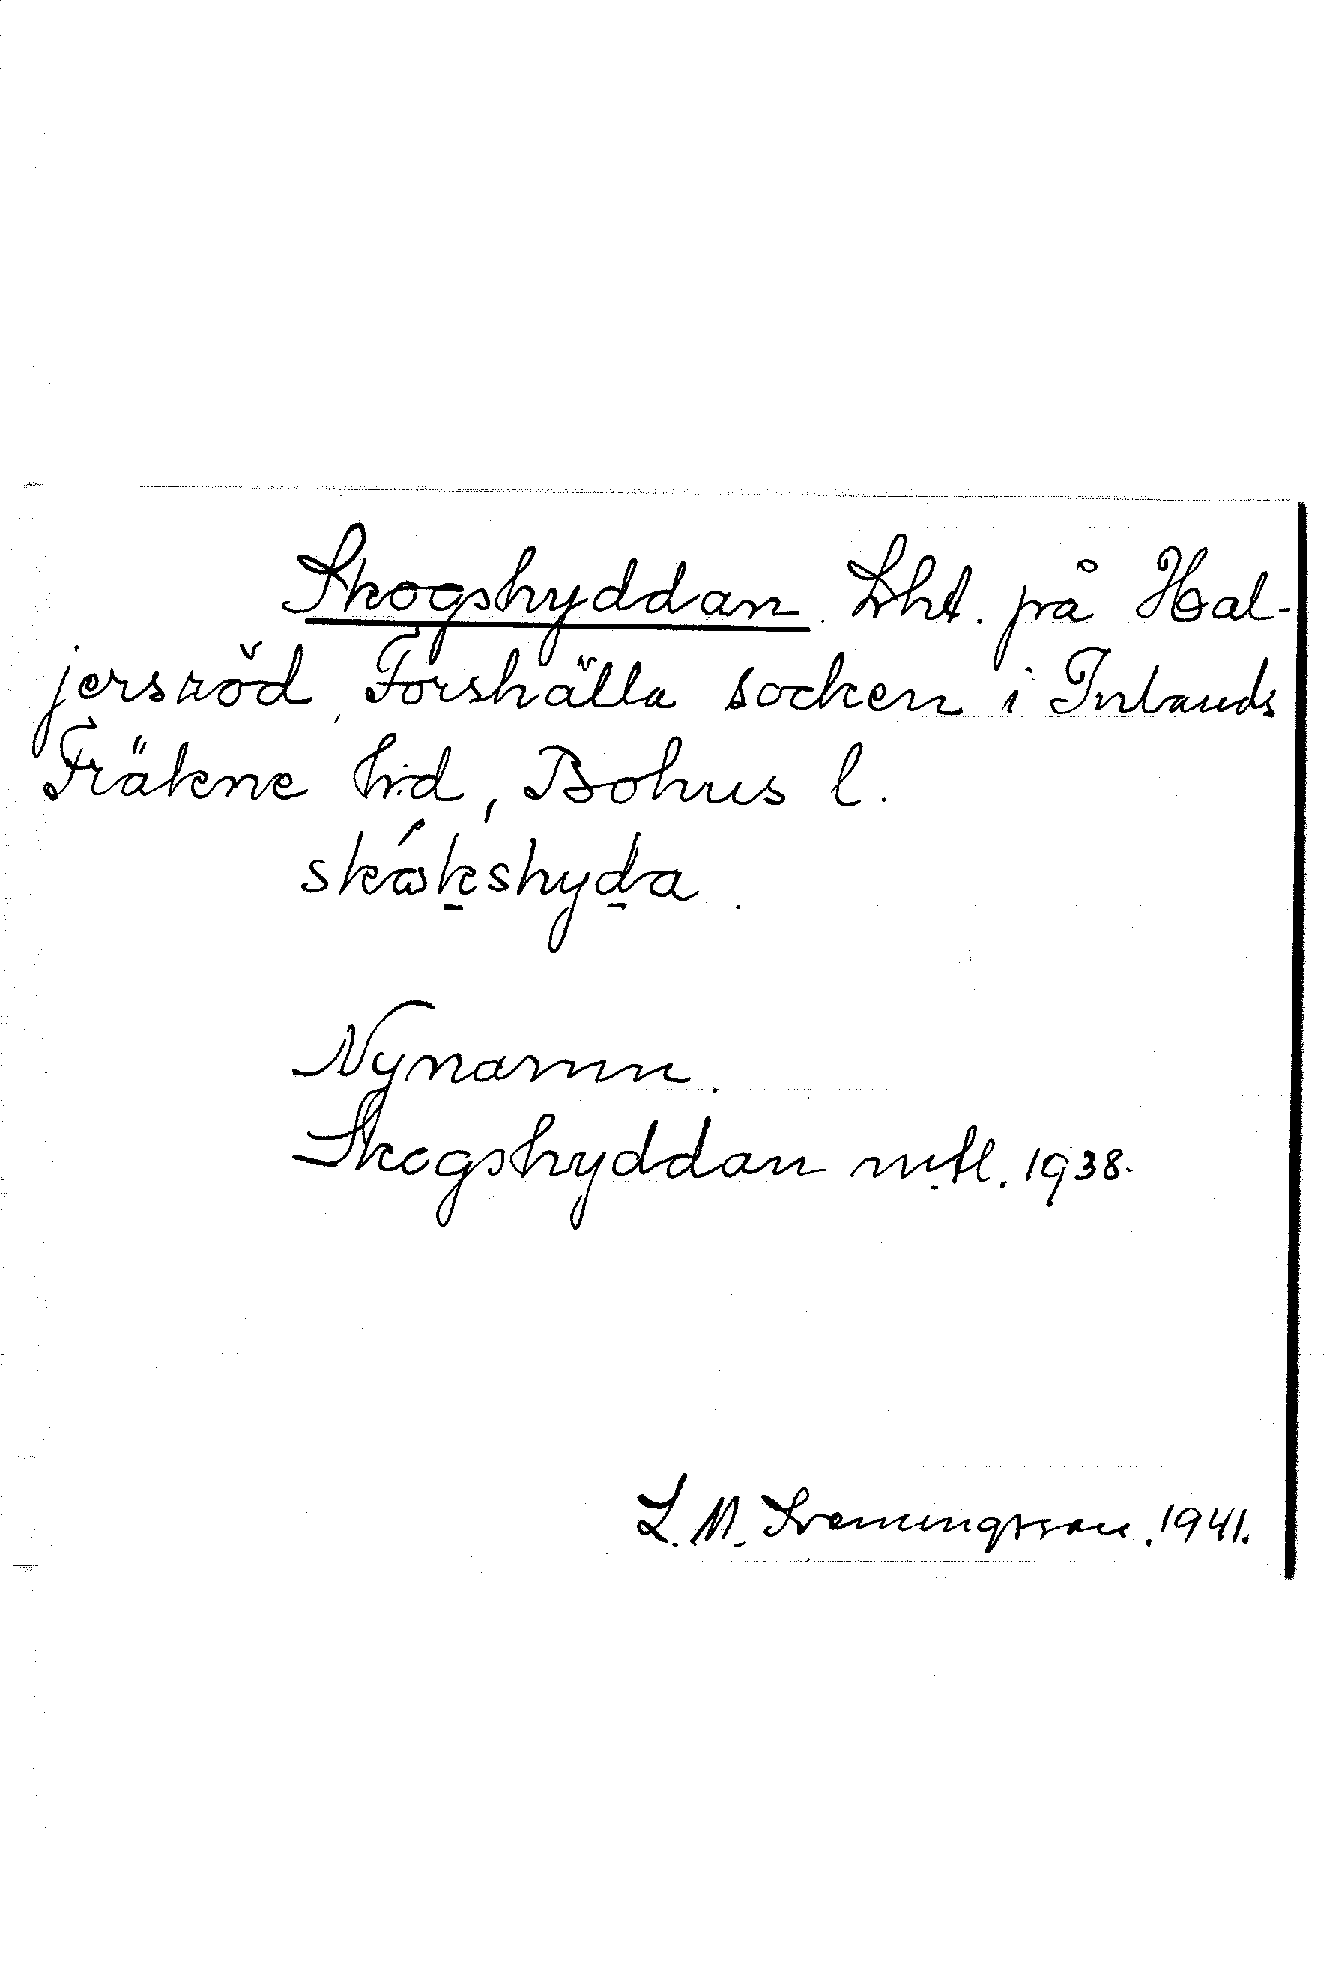 Skogshyddan. Lht. på Hal-
jersröd, Forshälla socken i Inlands
Fräkne hrd, Bohus l.
skó̱kshyda.
Nynamn.
Skogshyddan mtl. 1938.
L. M. Svenungsson. 1941.